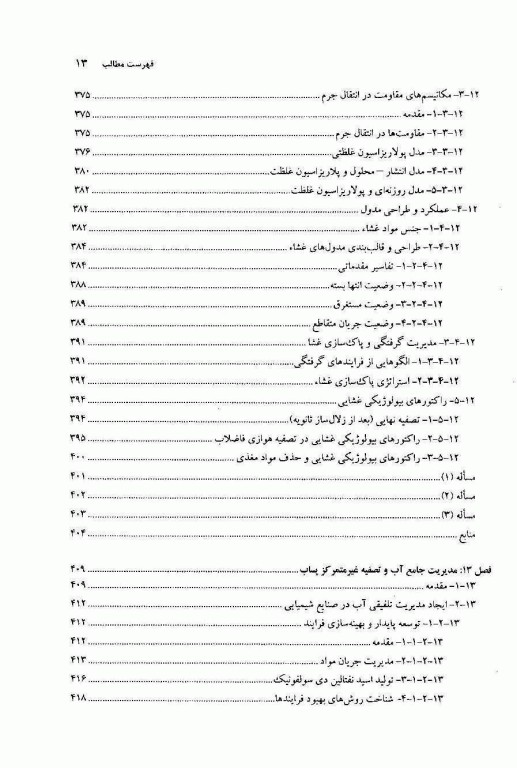 فهرست مطالب ۱۳
۱۲-۳- مکانیسم‌های مقاومت در انتقال جرم ۳۷۵
۱۲-۳-۱- مقدمه ۳۷۵
۱۲-۳-۲- مقاومت‌ها در انتقال جرم ۳۷۵
۱۲-۳-۳- مدل پولاریزاسیون غلظتی ۳۷۶
۱۲-۳-۴- مدل انتشار – محلول و پلاریزاسیون غلظت ۳۸۰
۱۲-۳-۵- مدل روزنه‌ای و پولاریزاسیون غلظت ۳۸۲
۱۲-۴- عملکرد و طراحی مدول ۳۸۲
۱۲-۴-۱- جنس مواد غشاء ۳۸۲
۱۲-۴-۲- طراحی و قالب‌بندی مدول‌های غشاء ۳۸۴
۱۲-۴-۲-۱- تفاسیر مقدماتی ۳۸۴
۱۲-۴-۲-۲- وضعیت انتها بسته ۳۸۸
۱۲-۴-۲-۳- وضعیت مستغرق ۳۸۹
۱۲-۴-۲-۴- وضعیت جریان متقاطع ۳۸۹
۱۲-۴-۳- مدیریت گرفتگی و پاک‌سازی غشا ۳۹۱
۱۲-۴-۳-۱- الگوهایی از فرایندهای گرفتگی ۳۹۱
۱۲-۴-۳-۲- استراتژی پاک‌سازی غشاء ۳۹۲
۱۲-۵- راکتورهای بیولوژیکی غشایی ۳۹۴
۱۲-۵-۱- تصفیه نهایی (بعد از زلال‌ساز ثانویه) ۳۹۴
۱۲-۵-۲- راکتورهای بیولوژیکی غشایی در تصفیه هوازی فاضلاب ۳۹۵
۱۲-۵-۳- راکتورهای بیولوژیکی غشایی و حذف مواد مغذی ۴۰۰
مسأله (۱) ۴۰۱
مسأله (۲) ۴۰۲
مسأله (۳) ۴۰۳
منابع ۴۰۴
فصل ۱۳: مدیریت جامع آب و تصفیه غیرمتمرکز پساب ۴۰۹
۱۳-۱- مقدمه ۴۰۹
۱۳-۲- ایجاد مدیریت تلفیقی آب در صنایع شیمیایی ۴۱۲
۱۳-۲-۱- توسعه پایدار و بهینه‌سازی فرایند ۴۱۲
۱۳-۲-۱-۱- مقدمه ۴۱۲
۱۳-۲-۱-۲- مدیریت جریان مواد ۴۱۳
۱۳-۲-۱-۳- تولید اسید نفتالین دی سولفونیک ۴۱۶
۱۳-۲-۱-۴- شناخت روش‌های بهبود فرایندها ۴۱۸